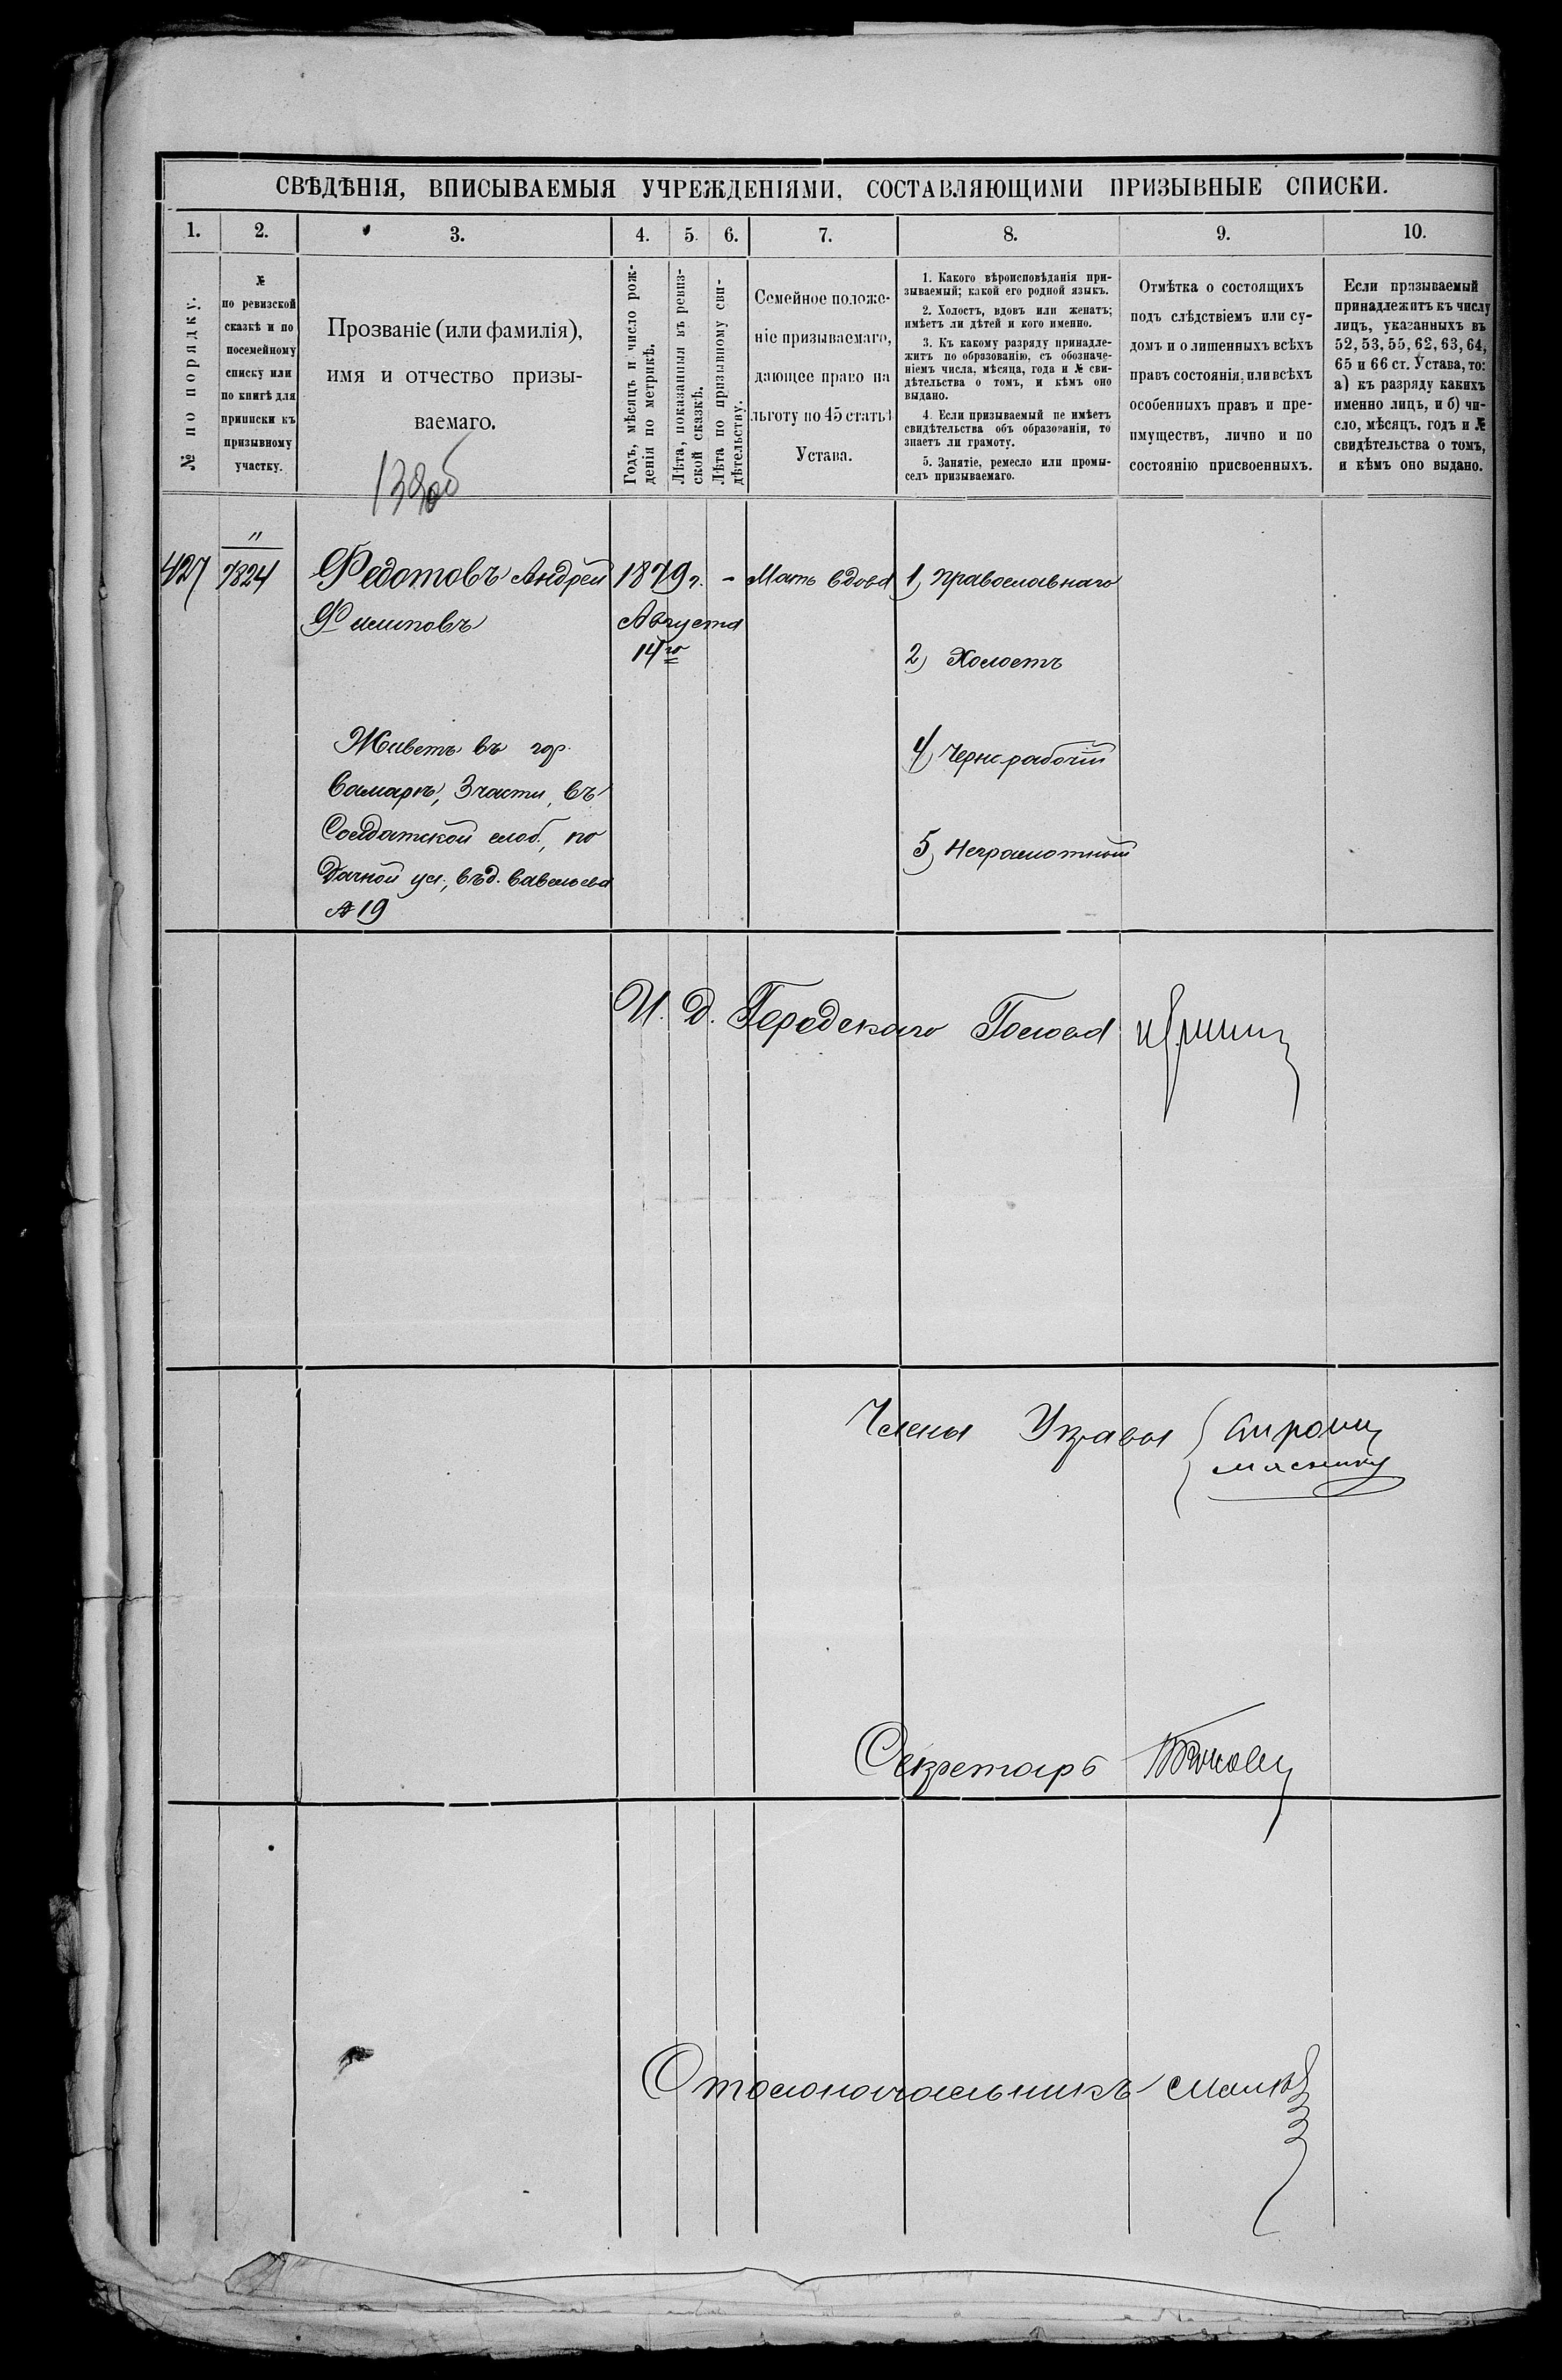 СВѢДѢНІЯ, ВПИСЫВАЕМЫЯ УЧРЕЖДЕНІЯМИ, СОСТАВЛЯЮЩИМИ ПРИЗЫВНЫЕ СПИСКИ.
1.
2.
3.
4.
5.
6.
7.
8.
9.
10.
№ по порядку.
№
по ревизской
сказкѣ и по
посемейному
списку или
по книгѣ для
приписки къ
призывному
участку.
Прозваніе (или фамилія),
имя и отчество призы-
ваемаго.
Годъ, мѣсяцъ и число рож-
денія по метрикѣ.
Лѣта, показанныя въ ревиз-
ской сказкѣ.
Лѣта по призывному сви-
дѣтельству.
Семейное положе-
ніе призываемаго,
дающее право на
льготу по 45 статьѣ
Устава.
1. Какого вѣроисповѣданія при-
зываемый; какой его родной языкъ.
2. Холостъ, вдовъ или женатъ;
имѣетъ ли дѣтей и кого именно.
3. Къ какому разряду принадле-
житъ по образованію, съ обозначе-
ніемъ числа, мѣсяца, года и № сви-
дѣтельства о томъ, и кѣмъ оно
выдано.
4. Если призываемый не имѣетъ
свидѣтельства объ образованіи, то
знаетъ ли грамоту.
5. Занятіе, ремесло или промы-
селъ призываемаго.
Отмѣтка о состоящихъ
подъ слѣдствіемъ или су-
домъ и о лишенныхъ всѣхъ
правъ состоянія, или всѣхъ
особенныхъ правъ и пре-
имуществъ, лично и по
состоянію присвоенныхъ.
Если призываемый
принадлежитъ къ числу
лицъ, указанныхъ въ
52, 53, 55, 62, 63, 64,
65 и 66 ст. Устава, то:
а) къ разряду какихъ
именно лицъ, и б) чи-
сло, мѣсяцъ, годъ и №
свидѣтельства о томъ,
и кѣмъ оно выдано.
"
427 7824 Федотовъ Андрей 1879 г. - Мать вдова 1, православнаго
Филиповъ Августа
14го
2) Холостъ
Живетъ въ гор.
Самарѣ, 3 части, въ
Солдатской слоб., по
Дачной ул., въ д. Савельева
№ 19
4) Чернорабочій
5) Неграмотный
И. Д. Городскаго Головы
Члены Управы
Секретарь
Столоначальникъ